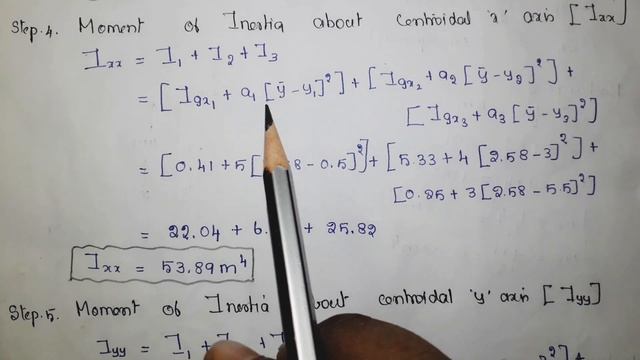 Step.4. Moment of Inertia about centroidal 'x' axis [Ixx]
Ixx = I1 + I2 + I3
= [Igx1 + a1 [ȳ - y1]²] + [Igx2 + a2 [ȳ - y2]²] +
[Igx3 + a3 [ȳ - y3]²]
= [0.41 + 5[ 8 - 0.5]²] + [5.33 + 4 [2.58 - 3]²] +
[0.25 + 3[2.58 - 5.5]²]
= 22.04 + 6. + 25.82
Ixx = 53.89 m⁴
Step.5. Moment of Inertia about centroidal 'y' axis [Iyy]
Iyy = I1 +